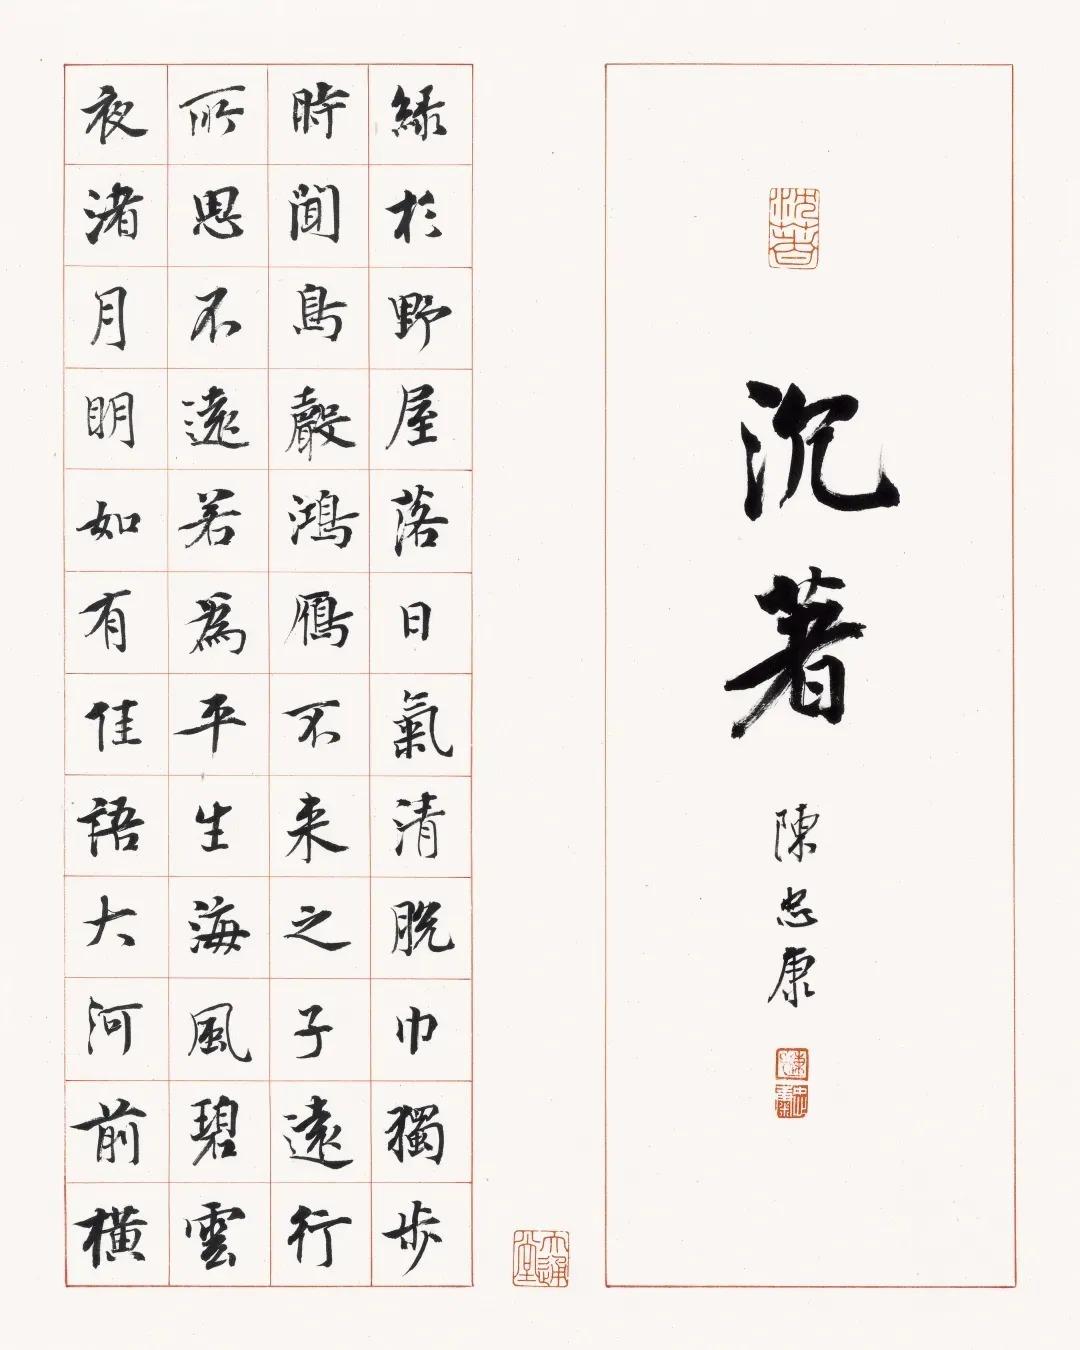 沈著
沉著
陳忠康
陳
忠康
緑於野屋落日氣清脱巾獨步
時聞鳥聲鴻鴈不来之子遠行
所思不遠若爲平生海風碧雲
夜渚月明如有佳語大河前橫